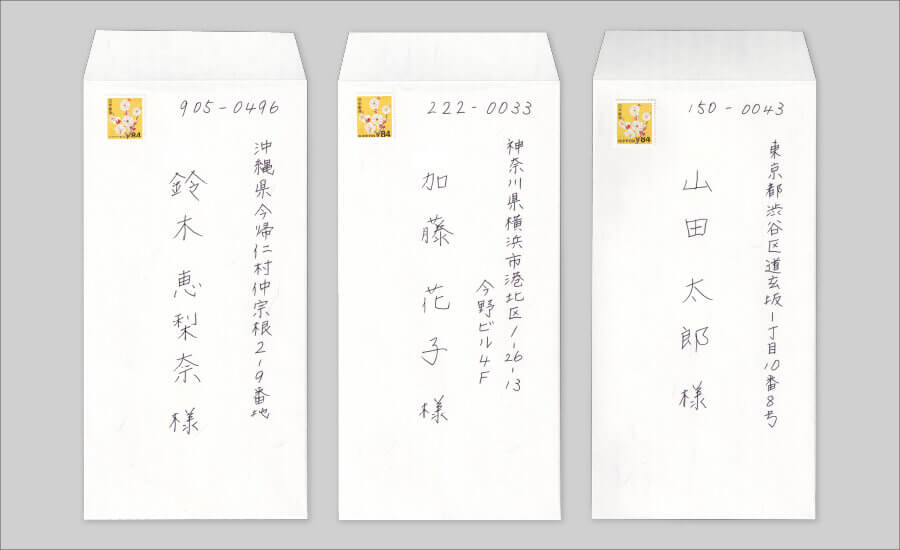 905-0496
沖縄県今帰仁村仲宗根2-9番地
鈴木 恵梨奈 様
¥84
222-0033
神奈川県横浜市港北区1-26-13
今野ビル4F
加藤 花子 様
¥84
150-0043
東京都渋谷区道玄坂1丁目10番8号
山田 太郎 様
¥84